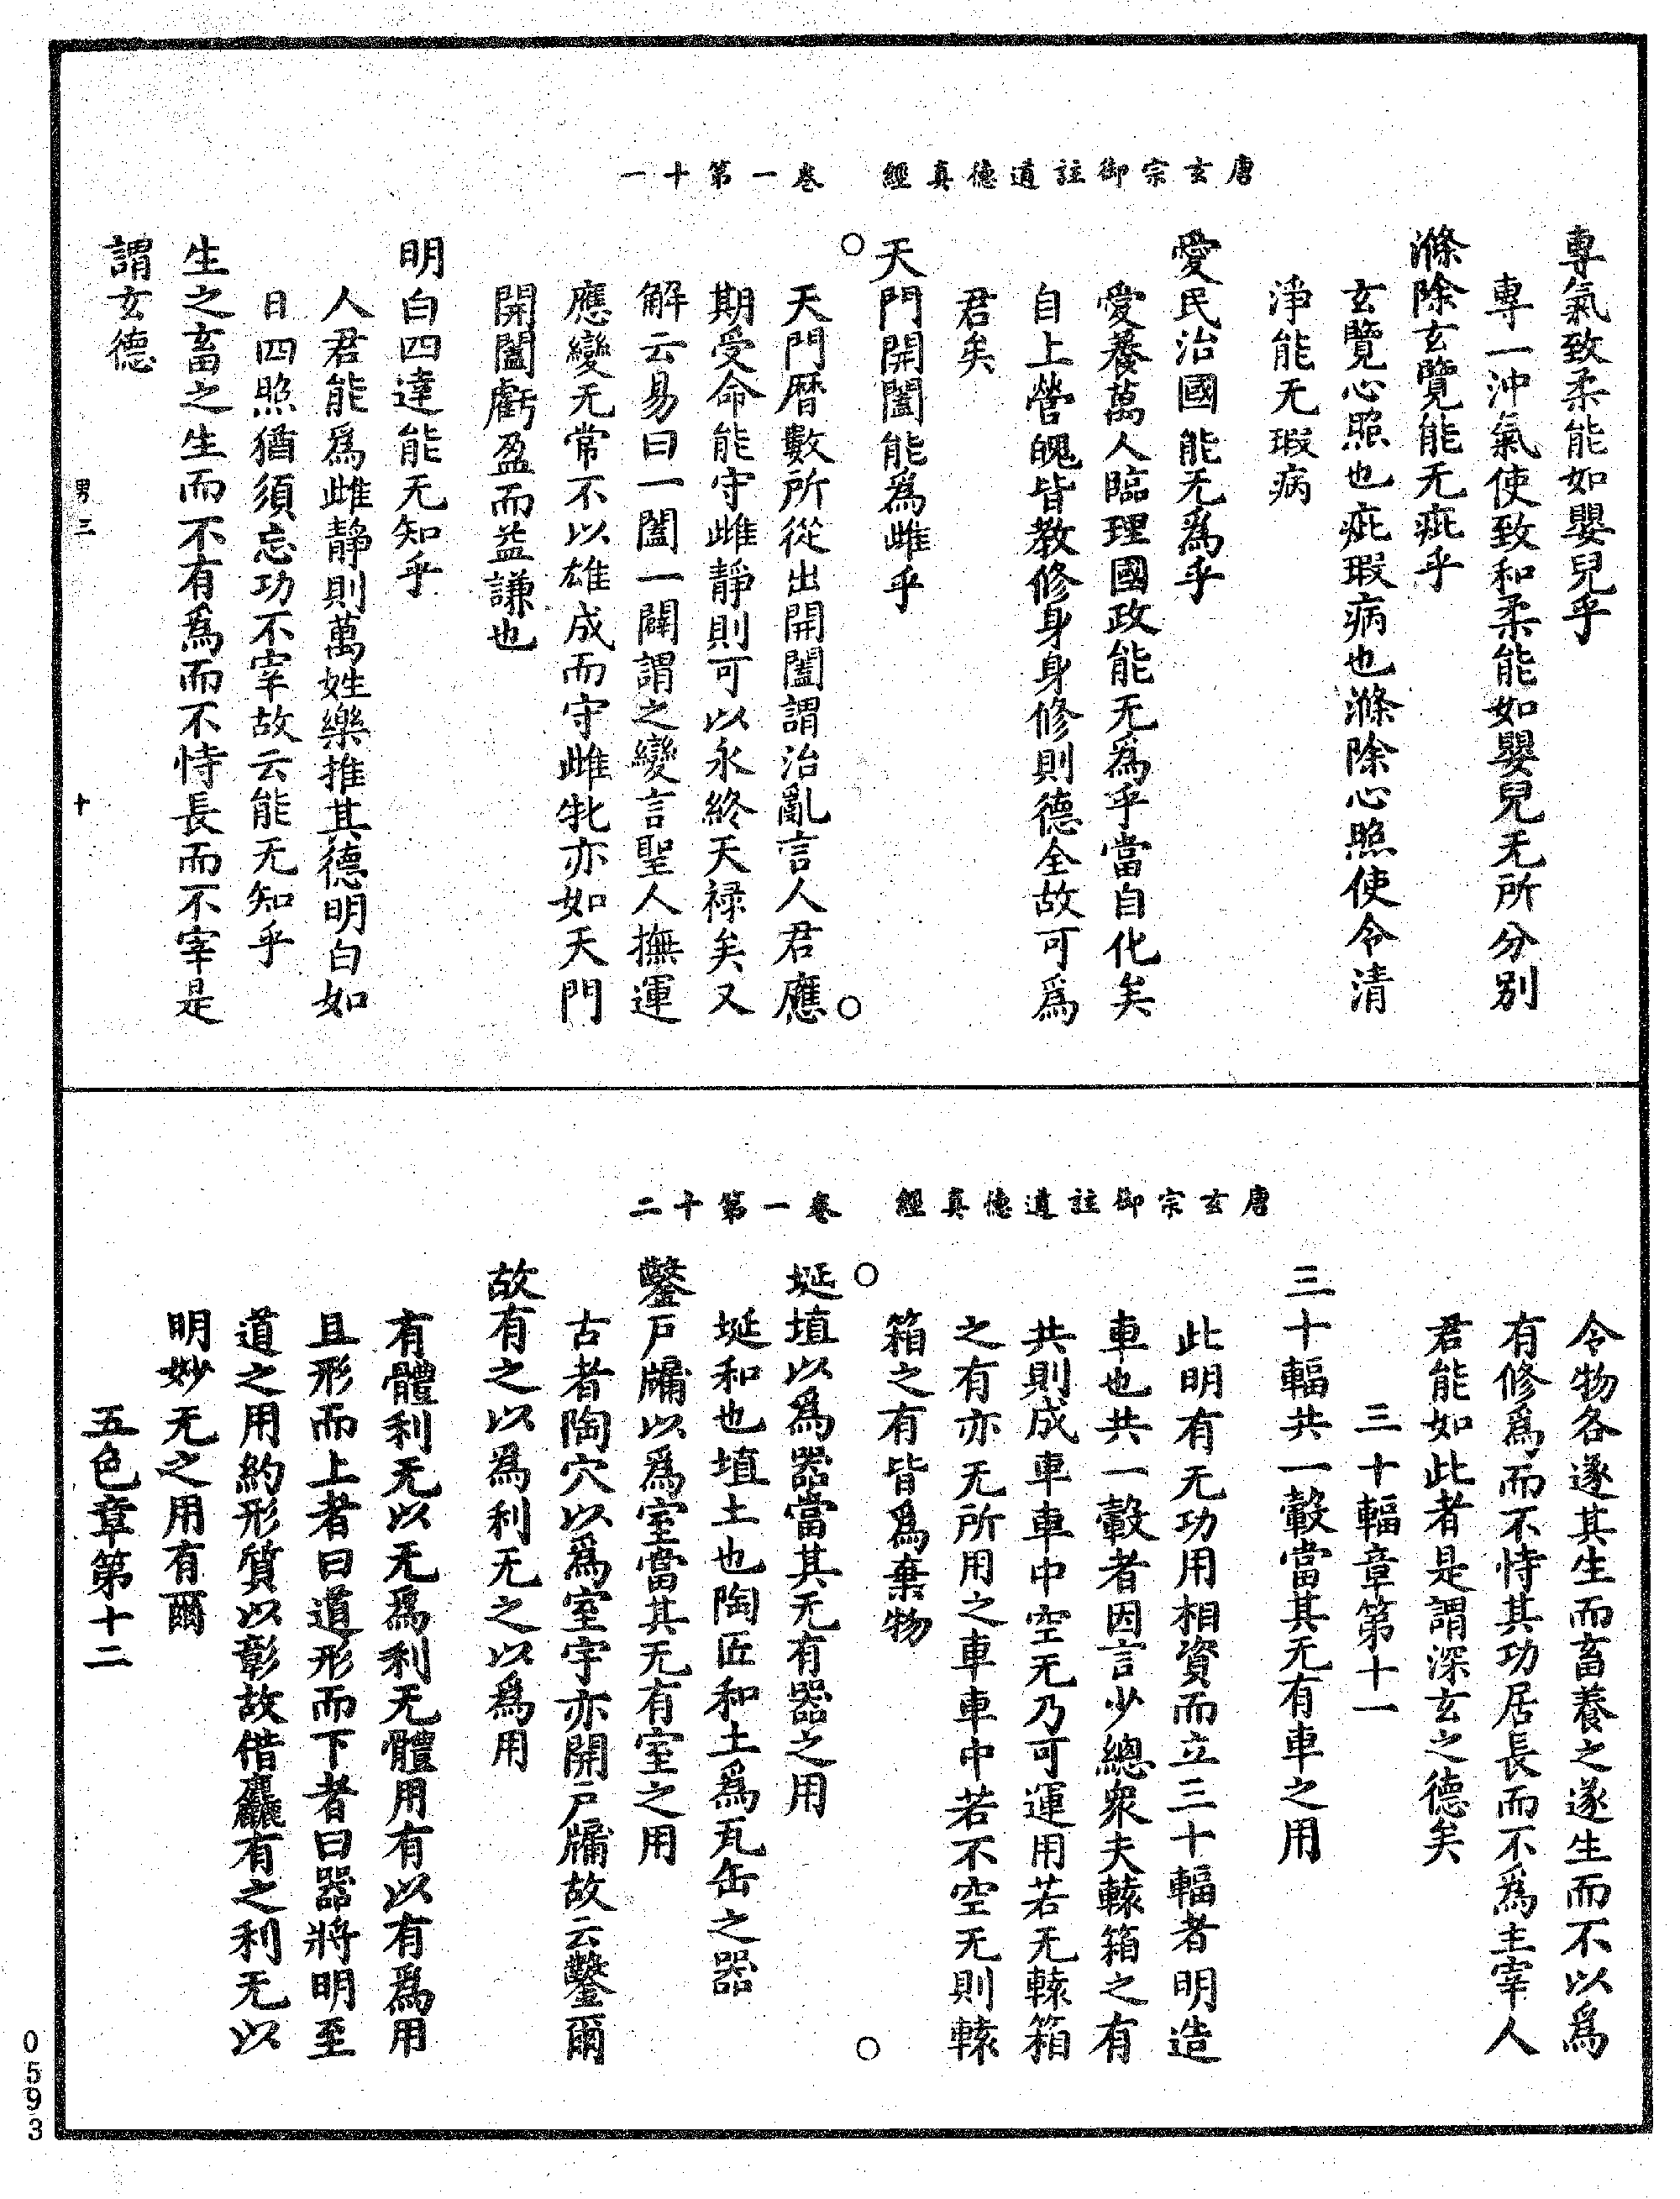 唐玄宗御註道德真經　卷一第十一
專氣致柔能如嬰兒乎
專一沖氣使致和柔能如嬰兒无所分別
滌除玄覽能无疵乎
玄覽心照也疵瑕病也滌除心照使令清
淨能无瑕病
愛民治國能无爲乎
愛養萬人臨理國政能无爲乎當自化矣
自上營魄皆教修身身修則德全故可爲
君矣
天門開闔能爲雌乎
天門曆數所從出開闔謂治亂言人君應
期受命能守雌靜則可以永終天祿矣又
解云易曰一闔一闢謂之變言聖人撫運
應變无常不以雄成而守雌牝亦如天門
開闔虧盈而益謙也
明白四達能无知乎
人君能爲雌靜則萬姓樂推其德明白如
日四照猶須忘功不宰故云能无知乎
生之畜之生而不有爲而不恃長而不宰是
謂玄德
男三　十
唐玄宗御註道德真經　卷一第十二
令物各遂其生而畜養之遂生而不以爲
有修爲而不恃其功居長而不爲主宰人
君能如此者是謂深玄之德矣
三十輻章第十一
三十輻共一轂當其无有車之用
此明有无功用相資而立三十輻者明造
車也共一轂者因言少總衆夫轅箱之有
共則成車車中空无乃可運用若无轅箱
之有亦无所用之車車中若不空无則轅
箱之有皆爲棄物
埏埴以爲器當其无有器之用
埏和也埴土也陶匠和土爲瓦缶之器
鑿戶牖以爲室當其无有室之用
古者陶穴以爲室宇亦開戶牖故云鑿爾
故有之以爲利无之以爲用
有體利无以无爲利无體用有以有爲用
且形而上者曰道形而下者曰器將明至
道之用約形質以彰故借麤有之利无以
明妙无之用有爾
五色章第十二
0593